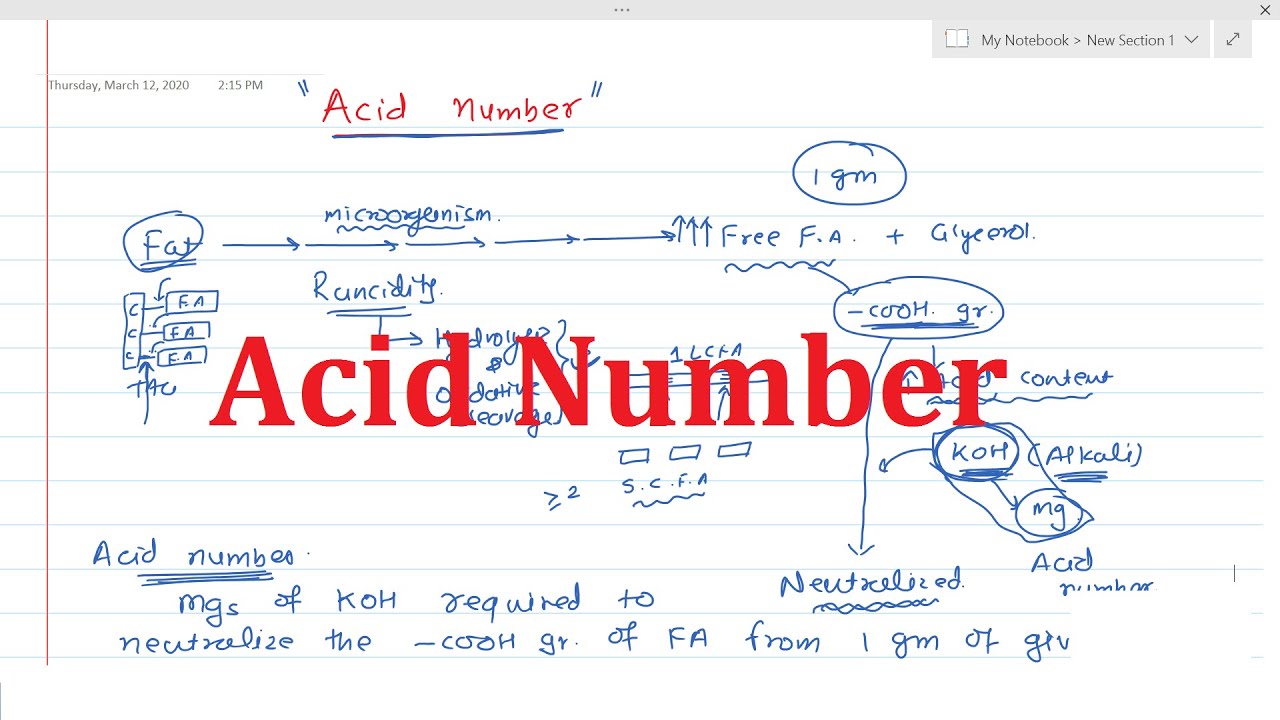 My Notebook > New Section 1
Thursday, March 12, 2020 2:15 PM
"Acid number"
1 gm
microorgenism.
Fat
↑↑↑ Free F.A. + Glycerol.
Rancidity.
-COOH. gr.
C F.A
C F.A
C F.A
TAG
&
1 LCFA
↑ Acid content
Acid Number
KOH (Alkali)
S.C.F.A
≥2
mg
Acid number.
Neutralized.
Acid
number
mgs of KOH required to
neutralize the -COOH gr. of FA from 1 gm of giv